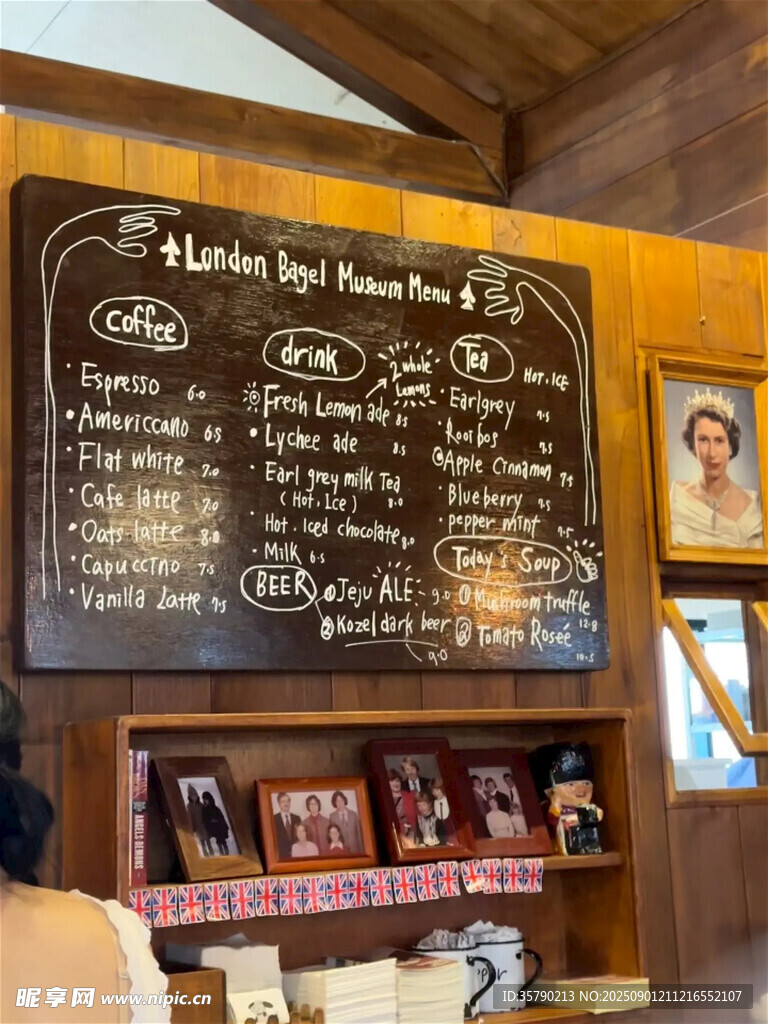 London Bagel Museum Menu
coffee
Espresso 6.0
Americcano 6.5
Flat white 7.0
Cafe latte 7.0
Oats latte 8.0
Capuccino 7.5
Vanilla Latte 7.5
drink
2 whole
Lemons
Fresh Lemon ade 8.5
Lychee ade 8.5
Earl grey milk Tea
(Hot, Ice) 8.0
Hot. Iced chocolate 8.0
Milk 6.5
BEER
① Jeju ALE 9.0
② Kozel dark beer
9.0
Tea
HOT. ICE
Earlgrey 7.5
Rooibos 7.5
Apple Cinnamon 7.5
Blueberry 7.5
pepper mint 7.5
Today's Soup
① Mushroom truffle
12.8
② Tomato Roseé
10.5
ANGELS DEMONS
昵图网 www.nipic.cn
ID:35790213 NO:20250901211216552107